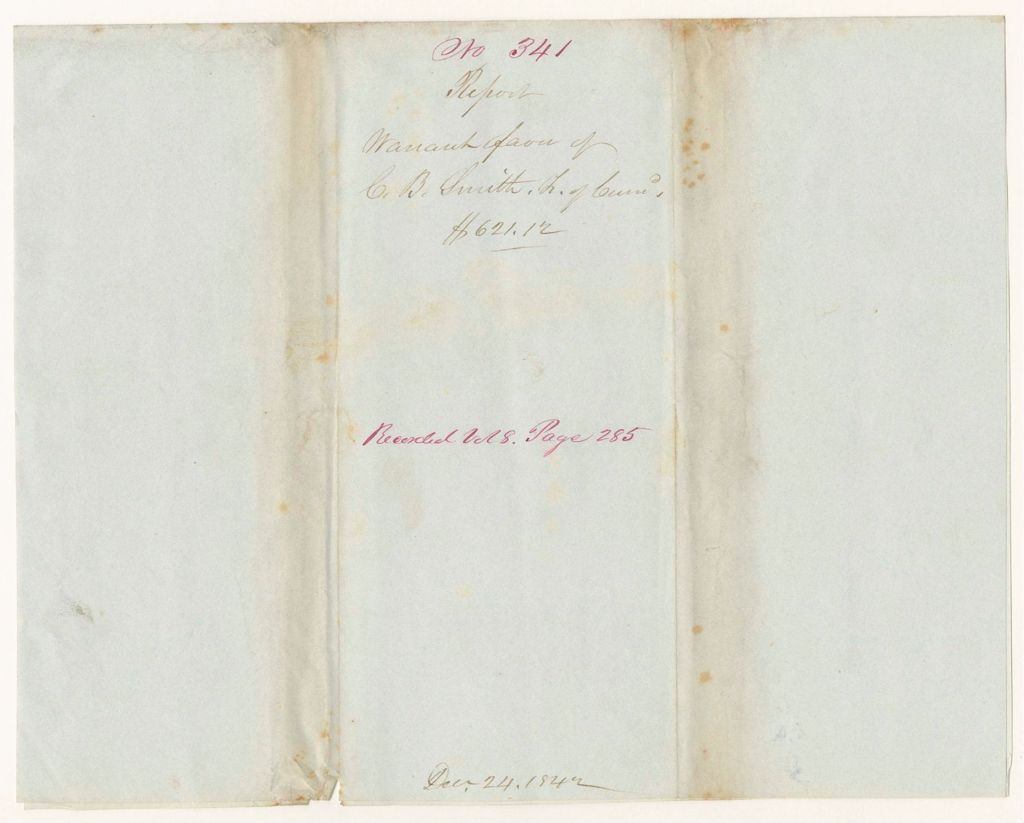 No 341
Report
Warrant favor of
C. B. Smith, Tr. of Cumd,
$621.12
Recorded Vol 8. Page 285
Dec. 24. 1842